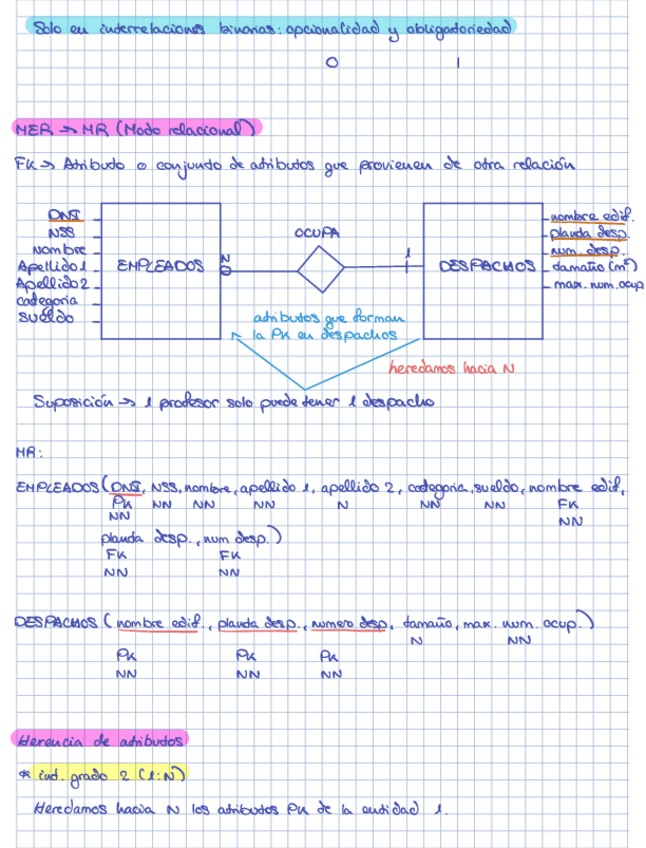 Solo en interrelaciones binarias: opcionalidad y obligatoriedad
0 1
MER → MR (Modo relacional)
FK → Atributo o conjunto de atributos que provienen de otra relación
DNI
NSS
Nombre
Apellido 1
Apellido 2
categoria
sueldo
EMPLEADOS
N
OCUPA
1
DESPACHOS
nombre edif.
planta desp.
num. desp.
tamaño (m²)
max. num. ocup
atributos que forman
la PK en despachos
heredamos hacia N
Suposición → 1 profesor solo puede tener 1 despacho
MR:
EMPLEADOS (DNI, NSS, nombre, apellido 1, apellido 2, categoria, sueldo, nombre edif,
PK NN NN NN N NN NN FK
NN NN
planta desp., num desp.)
FK FK
NN NN
DESPACHOS (nombre edif., planta desp., numero desp, tamaño, max. num. ocup.)
N NN
PK PK PK
NN NN NN
Herencia de atributos
* int. grado 2 (1:N)
Heredamos hacia N los atributos PK de la entidad 1.